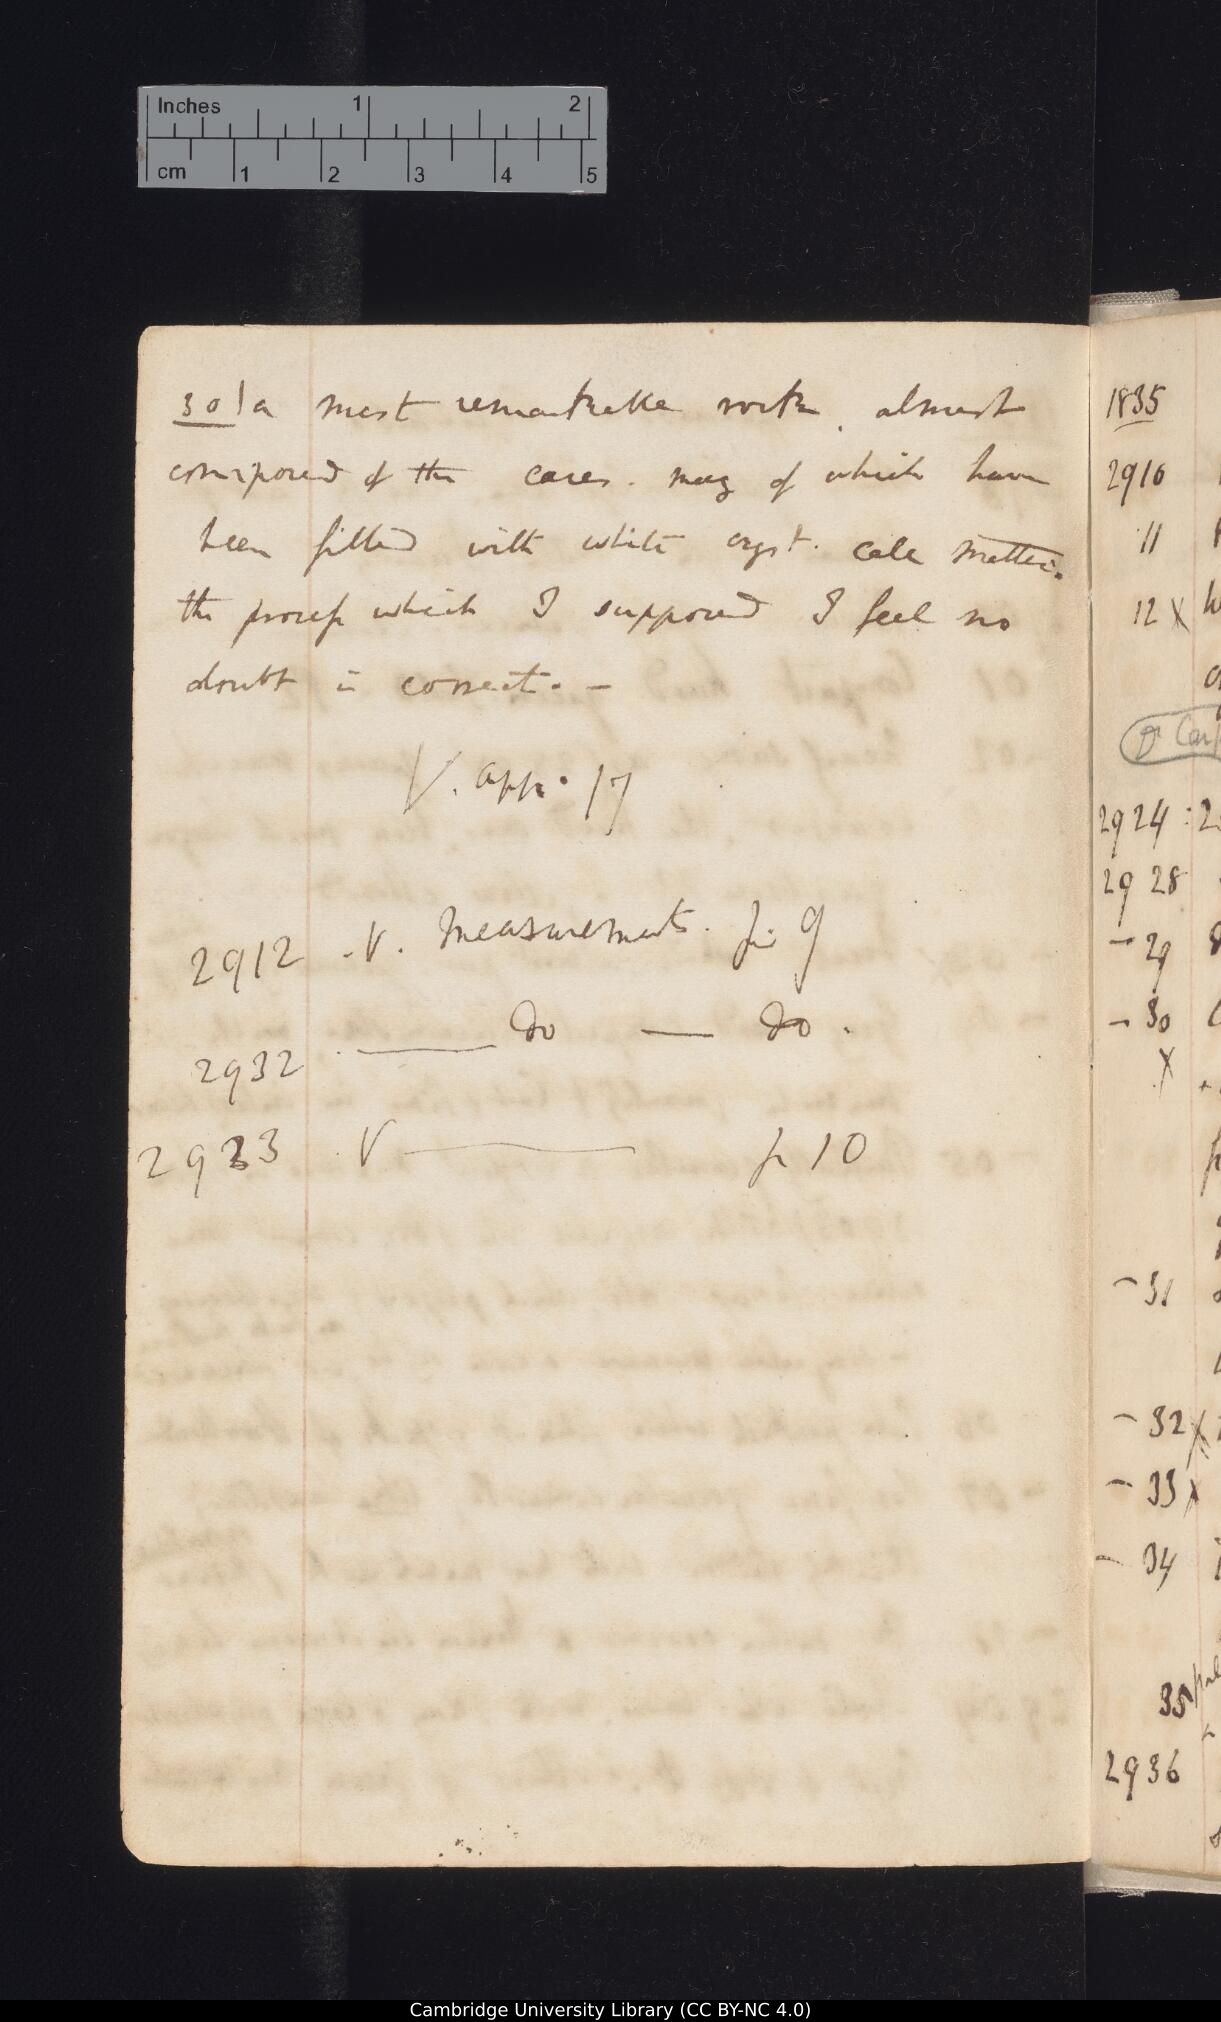 Inches 1 2
cm 1 2 3 4 5
30! a most remarkable rock, almost
composed of the cases. many of which have
been filled with white cryst. calc matter.
the process which I supposed I feel no
doubt is correct. —
V. app. 17
2912 . V. Measurements. p. 9
2932 . —— Do — Do .
2933 V —— p 10
1835
2910
11
12 X
Dr
2924 :
2928
— 29
— 30
X
— 31
— 32 X
— 33 X
— 34
35
2936
Cambridge University Library (CC BY-NC 4.0)